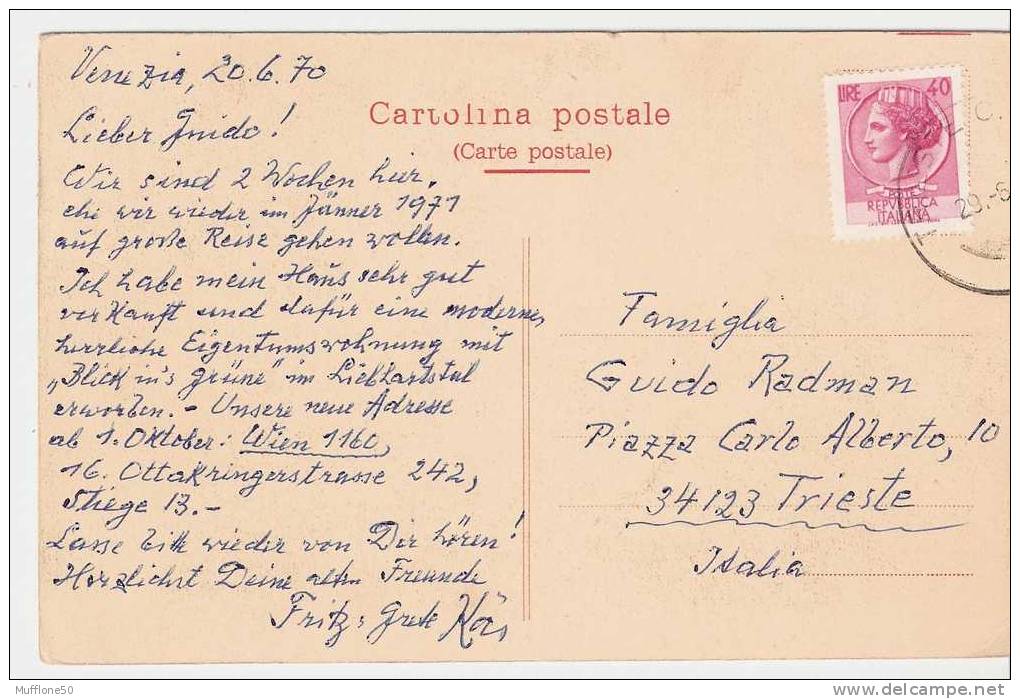 Venezia, 20.6.70
Lieber Guido!
Wir sind 2 Wochen hier,
ehe wir wieder im Jänner 1971
auf große Reise gehen wollen.
Ich habe mein Haus sehr gut
verkauft und dafür eine moderne,
herrliche Eigentumswohnung mit
„Blick in's grüne" im Liebhartstal
erworben. - Unsere neue Adresse
ab 1. Oktober: Wien 1160,
16. Ottakringerstrasse 242,
Stiege 13.-
Lasse bitte wieder von Dir hören!
Herzlichst Deine alten Freunde
Fritz + Grete
Cartolina postale
(Carte postale)
LIRE 40
POSTE
REPVBBLICA
ITALIANA
29.-6
Famiglia
Guido Radman
Piazza Carlo Alberto, 10
34123 Trieste
Italia
Mufflone50
www.delcampe.net